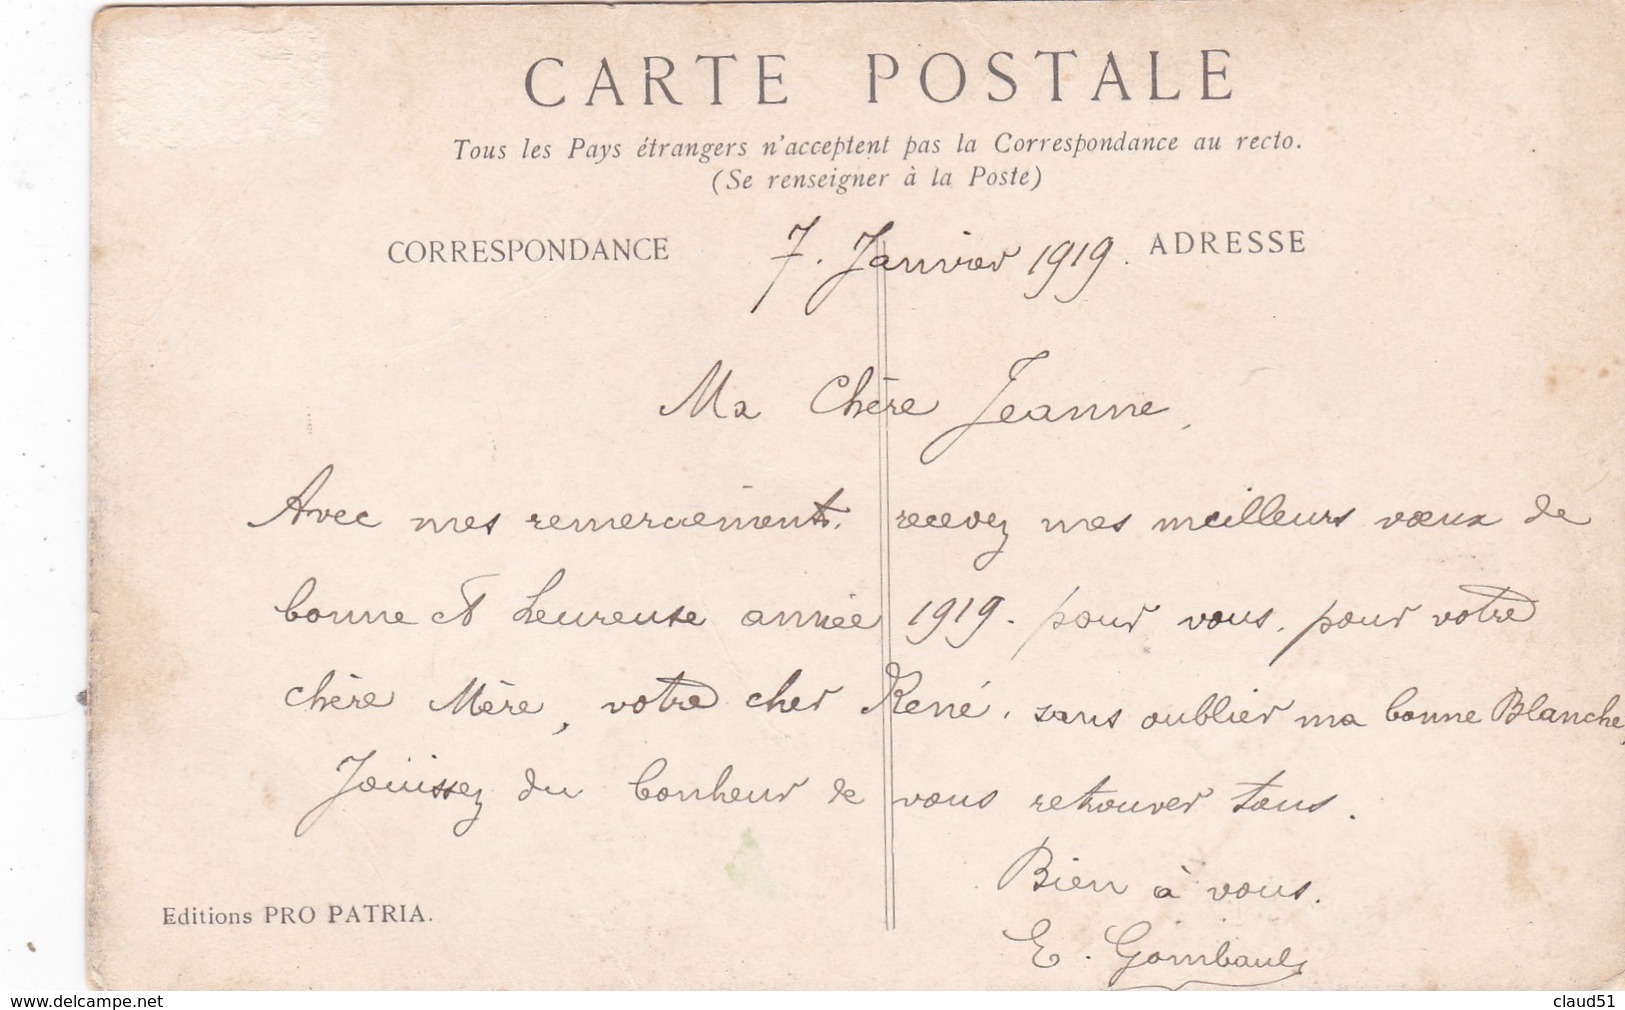 CARTE POSTALE
Tous les Pays étrangers n'acceptent pas la Correspondance au recto.
(Se renseigner à la Poste)
CORRESPONDANCE
7. Janvier 1919.
ADRESSE
Ma Chère Jeanne,
Avec mes remerciements, recevez mes meilleurs vœux de
bonne et heureuse année 1919. pour vous, pour votre
chère Mère, votre cher René, sans oublier ma bonne Blanche,
Jouissez du bonheur de vous retrouver tous.
Bien à vous.
E. Gombault
Editions PRO PATRIA.
www.delcampe.net
claud51